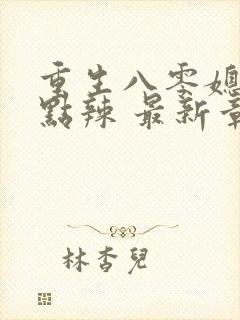 重生八零媳
點辣 最新章
林杏兒